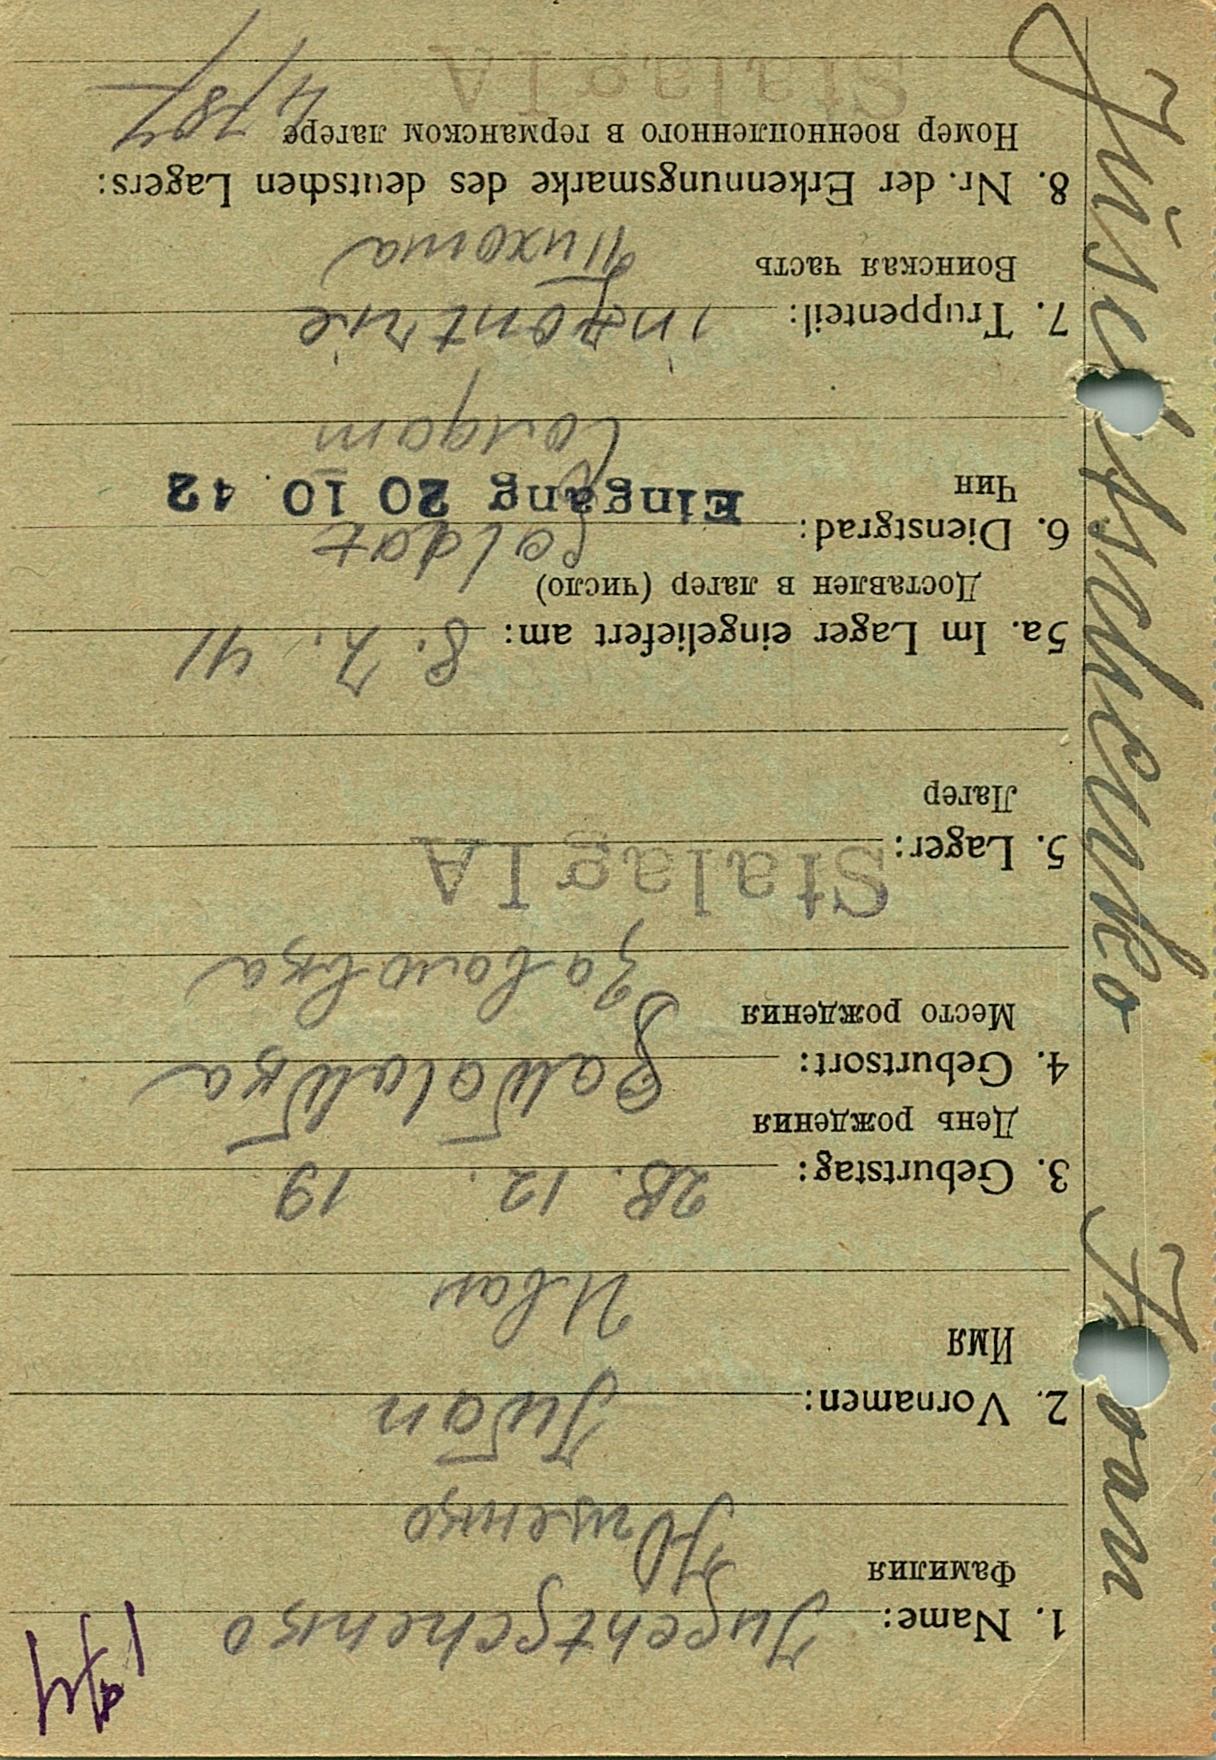 Ivan
1. Name: Juschtschenko
Фамилия Ющенко
2. Vornamen: Iwan
Имя Иван
3. Geburtstag: 28. 12. 19
День рождения
4. Geburtsort: Sawalowka
Место рождения Заваловка
Stalag IA
5. Lager:
Лагер
5a. Im Lager eingeliefert am: 8. 7. 41
Доставлен в лагер (число)
6. Dienstgrad: Soldat
Eingang 20 10. 42
Чин Солдат
7. Truppenteil: infantrie
Воинская часть Пихота
8. Nr. der Erkennungsmarke des deutschen Lagers:
Номер военнопленного в германском лагере 4787
Stalag IA